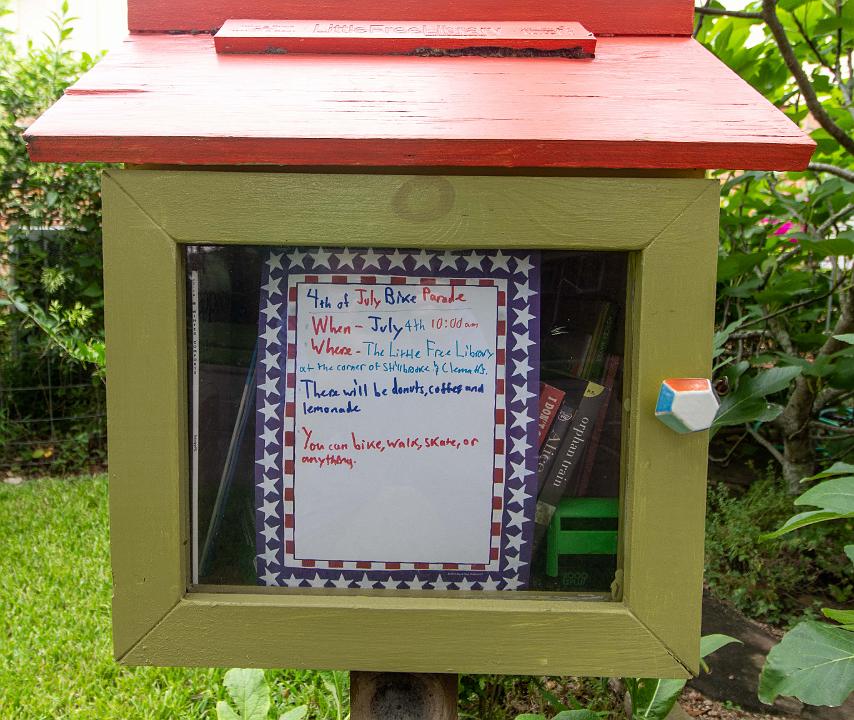 Little Free Library
4th of July Bike Parade
When - July 4th 10:00 am
Where - The Little Free Library
at the corner of Stillbrooke &
There will be donuts, coffee and
lemonade
You can bike, walk, skate, or
anything.
I DON'T
Alice
orphan train